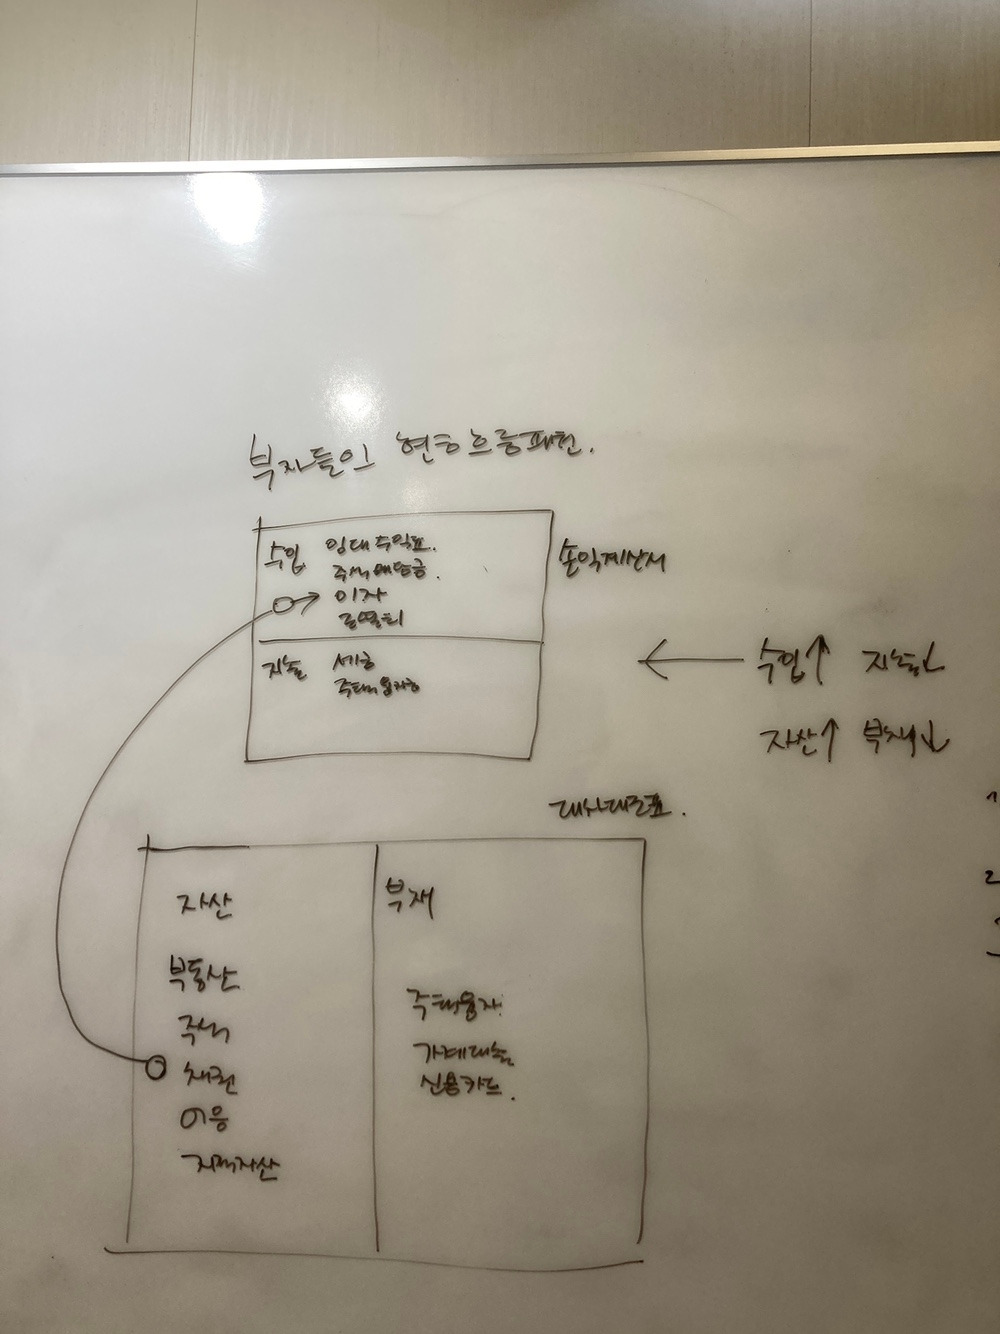 부자들의 현금흐름패턴.
수입 임대수익료.
주식배당금.
이자
로열티
손익계산서
지출 세금
주택융자금
수입↑ 지출↓
자산↑ 부채↓
대차대조표.
자산
부동산
주식
채권
어음
지적자산
부채
주택융자
가계대출
신용카드.